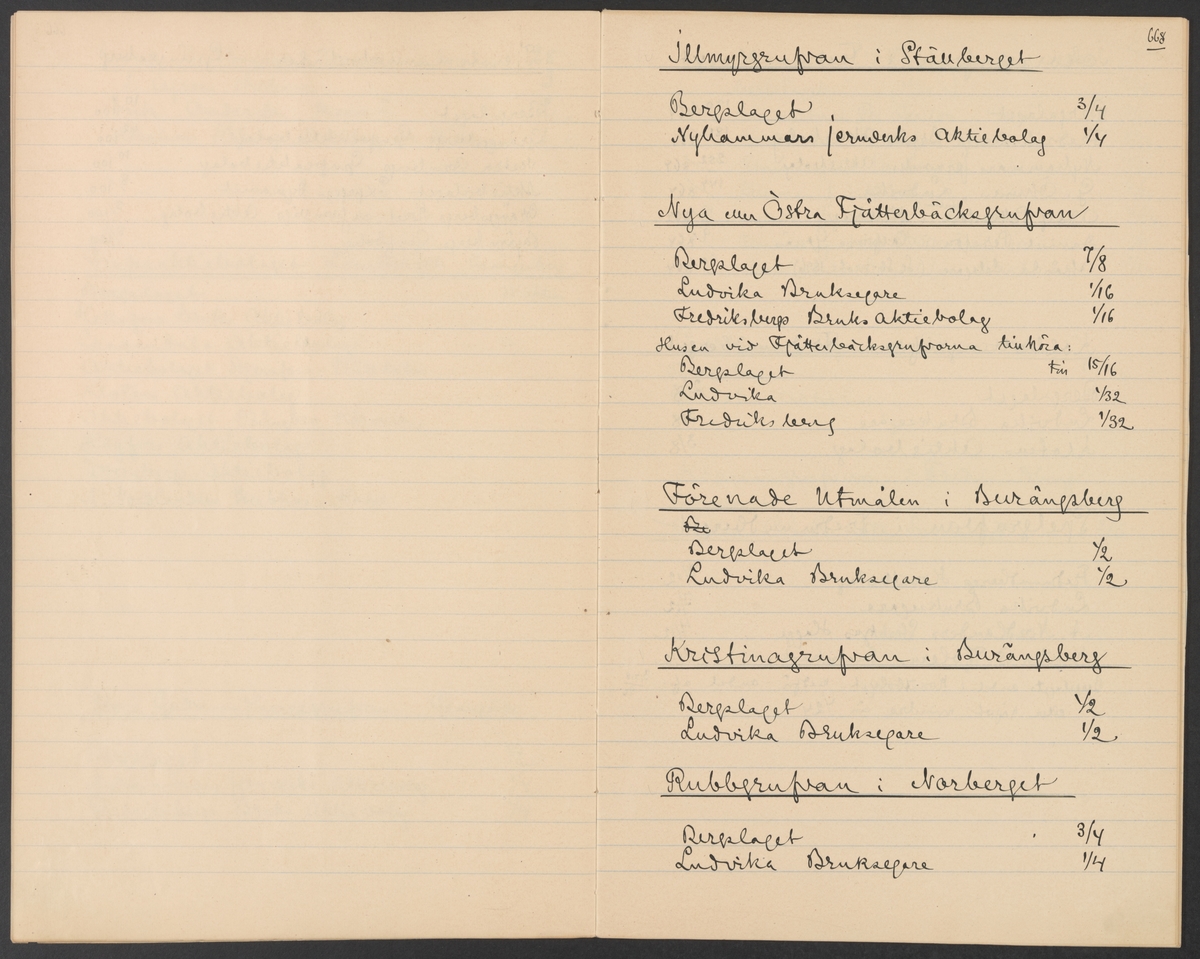 668
Illmyrgrufvan i Ställberget
Bergslaget 3/4
Nyhammars jernverks Aktiebolag 1/4
Nya eller Östra Fjätterbäcksgrufvan
Bergslaget 7/8
Ludvika Bruksegare 1/16
Fredriksbergs Bruks Aktiebolag 1/16
Husen vid Fjätterbäcksgrufvorna tillhöra:
Bergslaget till 15/16
Ludvika 1/32
Fredriksberg 1/32
Förenade Utmålen i Burängsberg
Bergslaget 1/2
Ludvika Bruksegare 1/2
Kristinagrufvan i Burängsberg
Bergslaget 1/2
Ludvika Bruksegare 1/2
Rubbgrufvan i Norberget
Bergslaget 3/4
Ludvika Bruksegare 1/4